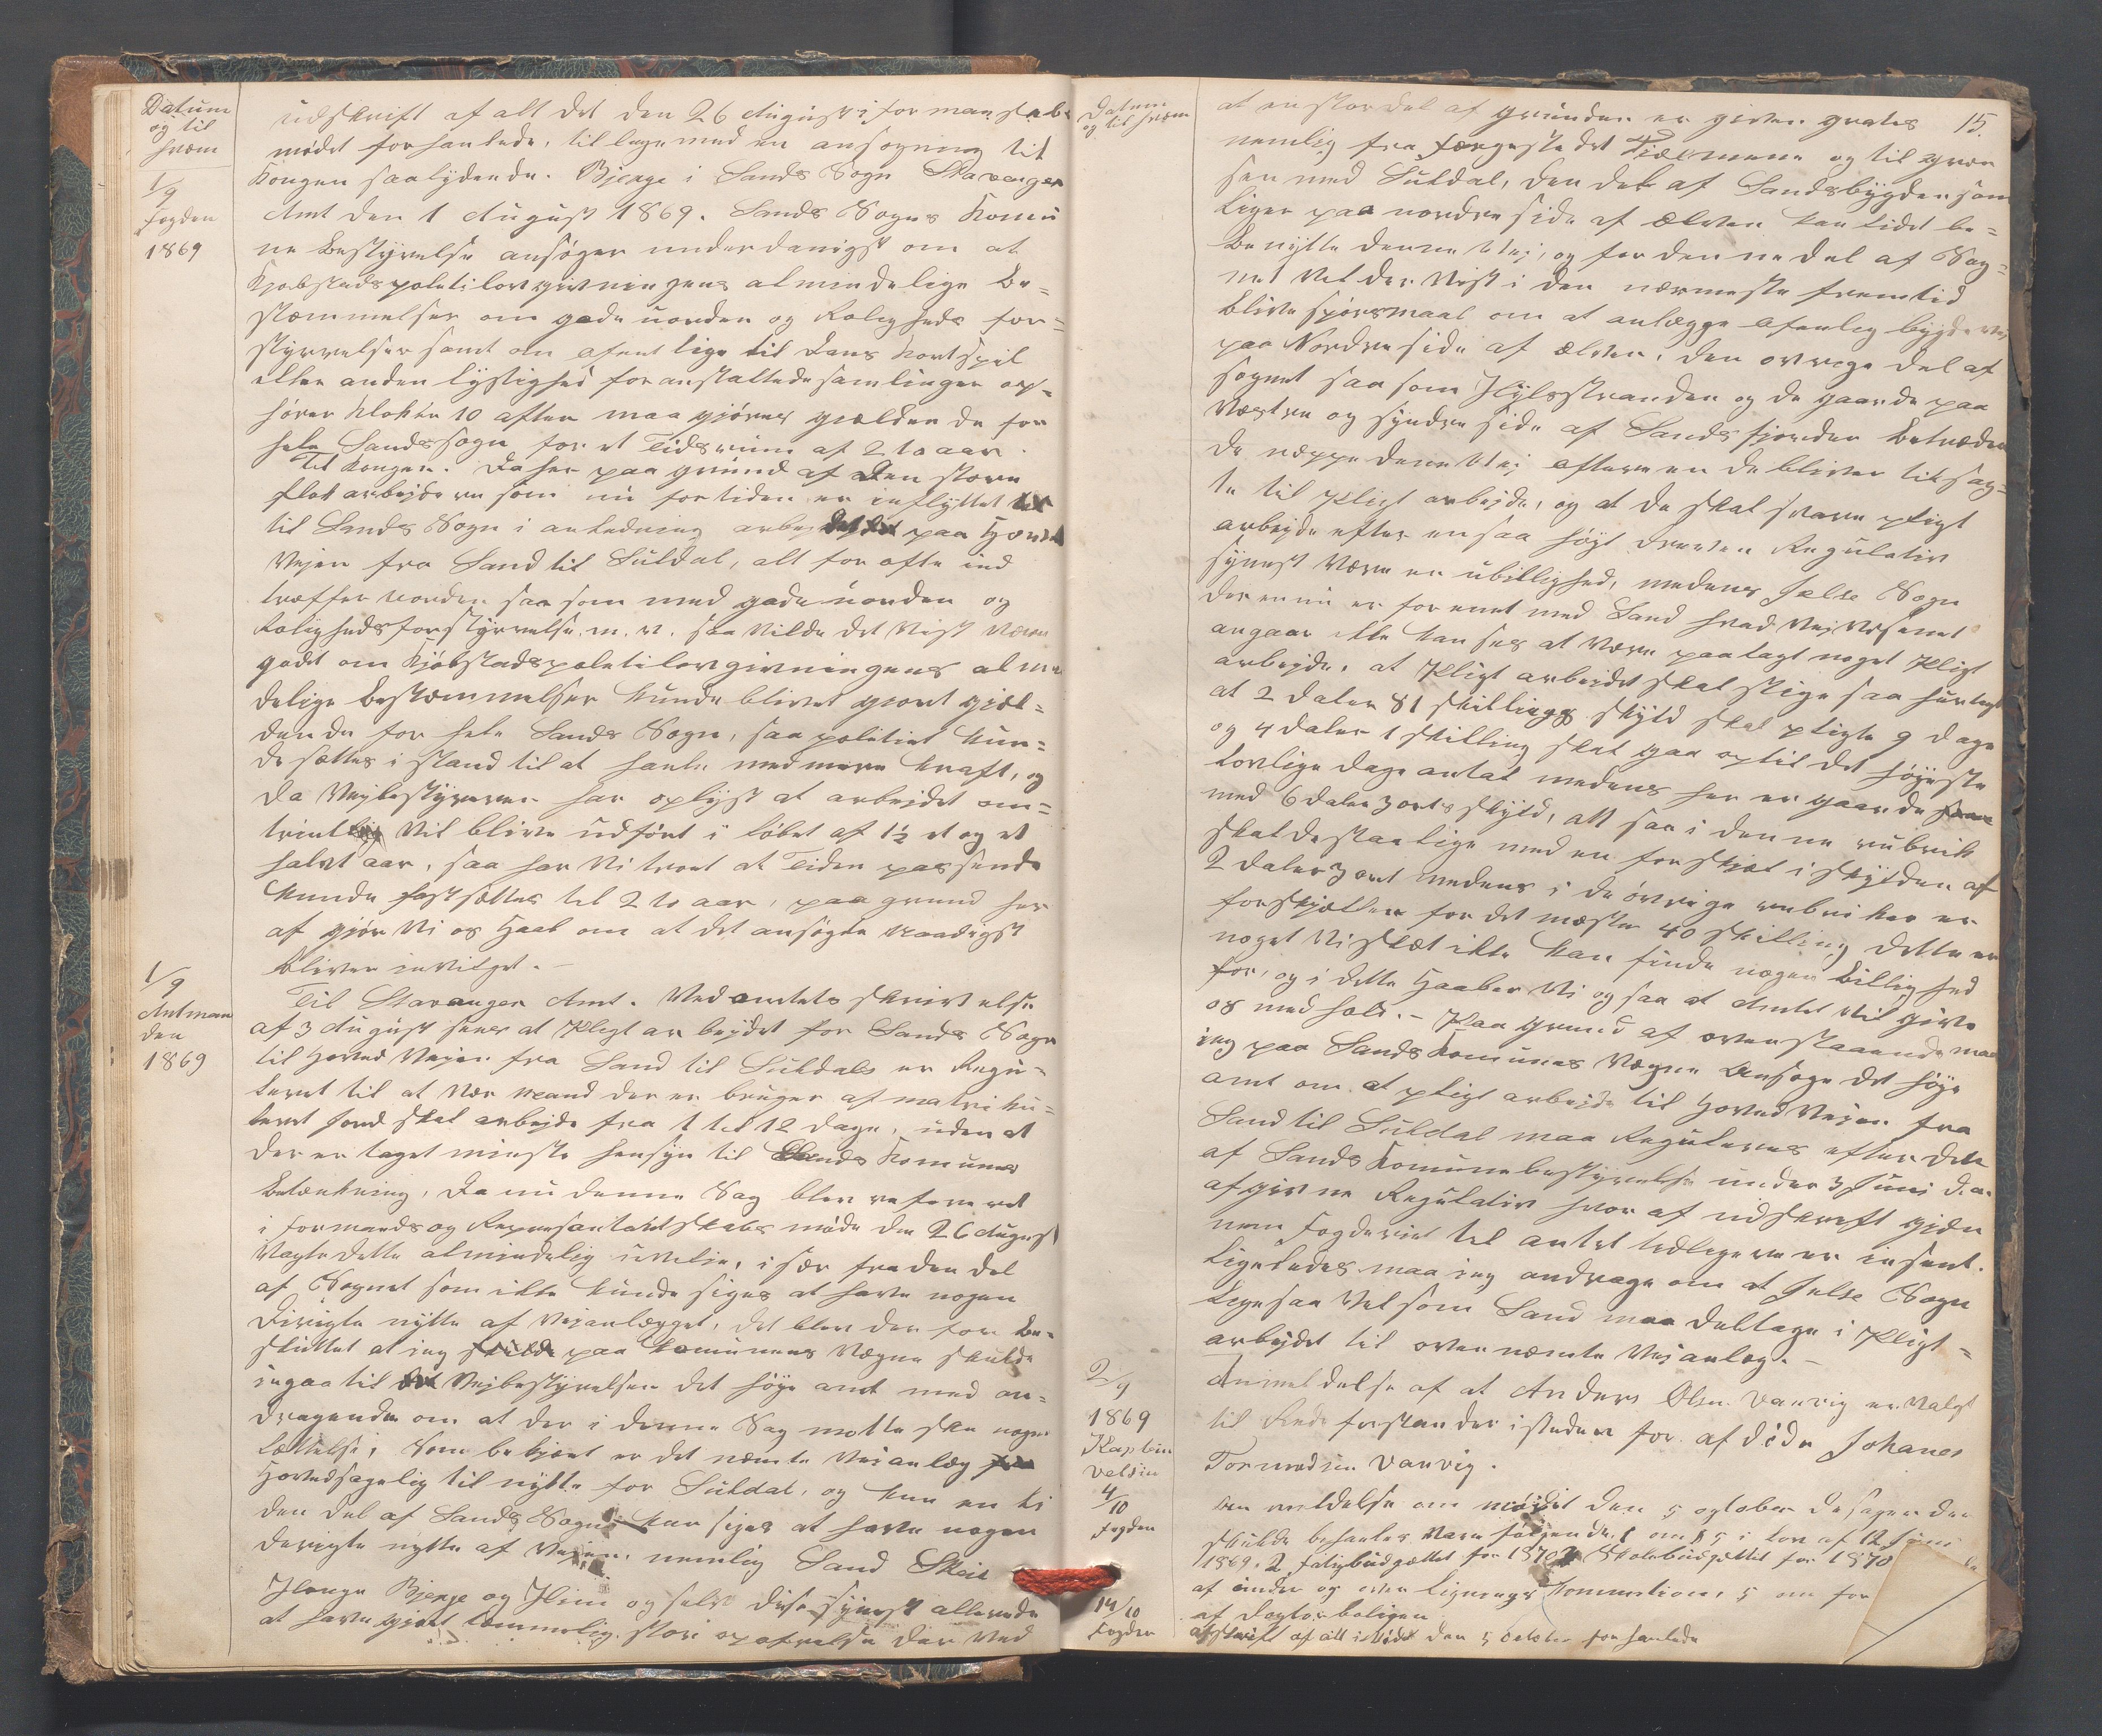 Datum
og til
hvem
1/9
Fogden
1869
Udskrift af alt det den 26 August i formanskabs
mødet forhanlede, tillege med en ansøgning til
Kongen saalydende. Bjerge i Sands Sogn Stavanger
Amt den 1 August 1869. Sands Sogns Komu
ne Bestyrelse ansøger underdanigst om at
Kjøbstadspolitilovgivningens almindelige Be=
stemmelser om gade uorden og Roligheds for=
styrrelser samt om ofentlige til Dans Kortspil
eller anden lystighed foranstaltede samlinger op=
hører Klokken 10 aften maa gjøres gjældende for
hele Sands sogn for et Tidsrum af 2 to aar.
Til Kongen. Da her paa grund af den store
flok arbejdere som nu for tiden er inflyttet
til Sands Sogn i anledning arbejdet paa Hoved
Vejen fra Sand til Suldal, alt for ofte ind
træffer uorden saa som med gade uorden og
Rolighedsforstyrrelse m.v. saa vilde det vist være
godt om Kjøbstadspolitilovgivningens almin
delige bestemmelser kunde blivet gjort gjæl=
dende for hele Sands Sogn, saa politiet kun=
de sættes i stand til at hanle med mere kraft, og
da Vejbestyreren har oplyst at arbejdet om=
trint vil blive udført i løbet af 1½ et og et
halvt aar, saa har vi troet at Tiden passende
kunde fastsættes til 2 to aar, paa grund her
af gjør vi os Haab om at det ansøgte naadigst
bliver invilget. —
1/9
Amtman
den
1869
Til Stavanger Amt. Ved amtets skrivelse
af 3 August sees at Pligtarbejdet for Sands Sogn
til Hoved Vejen fra Sand til Suldals er Regu=
leret til at vær mand der er bruger af matriku=
leret jord skal arbejde fra 1 til 12 dage, uden at
der er taget minste hensyn til Sands Komunes
Betænkning, Da nu denne Sag blev refereret
i formands og Representantskabs møde den 26 August
vagte dette almindelig uvilie, i sær fra den del
af Sognet som ikke kunde siges at have nogen
Dirigte nytte af Vejanlægget, det blev der for be=
sluttet at jeg paa Komunens Vegne skulde
ingaa til Vejbestyrelsen det høje amt med an=
dragende om at der i denne Sag motte ske nogen
lettelse, Som bekjent er det nemte Vejanlæg
Hovedsagelig til nytte for Suldal, og kun en li
den del af Sands Sogn kan siges at have nogen
Dirigte nytte af Vejen, nemlig Sand Skeie
Houge Bjerge og Hiim og selv disse synest allerede
at have gjort temmelig stor opofrelse der ved
Datum
og til hvem
15.
at en stor del af grunden er given gratis
nemlig fra færgestedet Fiælmene og til græn
sen med Suldal, den del af Sandsbygden som
liger paa nordre side af Elven kan lidt be=
benytte denne Vej, og for denne del af Sog=
net vel der vist i den nermeste fremtid
blive spørsmaal om at anlægge ofenlig bygdevej
paa Nordre side af Elven. den øvrige del af
sognet saa som Hylsstranden og de gaarde paa
Vestre og syndre side af Sandsfjorden betræder
de neppe dene Vej eftersom de bliver tilsag=
te til Pligtarbejde, og at de skal svare pligt
arbejde efter en saa høgt dreven Regulativ
synest være en ubillighed, medens Jelse Sogn
der ennu er forenet med Sand hvad Vejvesenet
angaar ikke kan ses at være paalagt noget Pligt
arbejde, at Pligtarbejdet skal stige saa hurtigt
at 2 daler 81 skillings skyld skal pligte 9 dage
og 4 daler 1 skilling skal gaa optil det høieste
lovlige dage antal medens her er gaarde
med 6 daler 3 orts skyld, alt saa i denne rubrik
skal de staa lige med en forskjel i skylden af
2 daler 3 ort medens i de øvrige rubriker er
forskjellen for det meste 40 skilling dette er
noget vi slæt ikke kan finde nogen billighed
for, og i dette Haaber Vi og saa at Amtet vil give
os medhold. – Paa grund af ovenstaaende maa
jeg paa Sands Komunes Vegne Ansøge det høje
amt om at pligtarbejde til Hoved Vejen fra
Sand til Suldal maa Reguleres efter den
af Sands Komunebestyrelse under 3 Juni d.a.
afgivne Regulativ hvor af udskrift gjen
nem Fogderiet til amtet tidligere er insent.
Ligeledes maa jeg andrage om at Jelse Sogn
ligesaa vel som Sand maa deltage i Pligt=
arbejdet til oven nemte Vejanlæg. —
2/9
1869
Kaptein
Valsin
Anmeldelse af at Anders Olsn. Vanvig er valgt
til Rodeforstander isteden for afdøde Johanes
Tormodsen Vanvig.
4/10
Fogden
An meldelse om mødet den 5 october de sager der
skulde behanles vare følgende, 1 om § 5 i lov af 12 Juni
1869. 2 Fatigbudgættet for 1870 3 Skolebudgættet for 1870
af under og over Lignings Kommission, 5 om for
af Doktorboligen
14/10
Fogden
afskrift af alt i Mødet den 5 october forhanlede